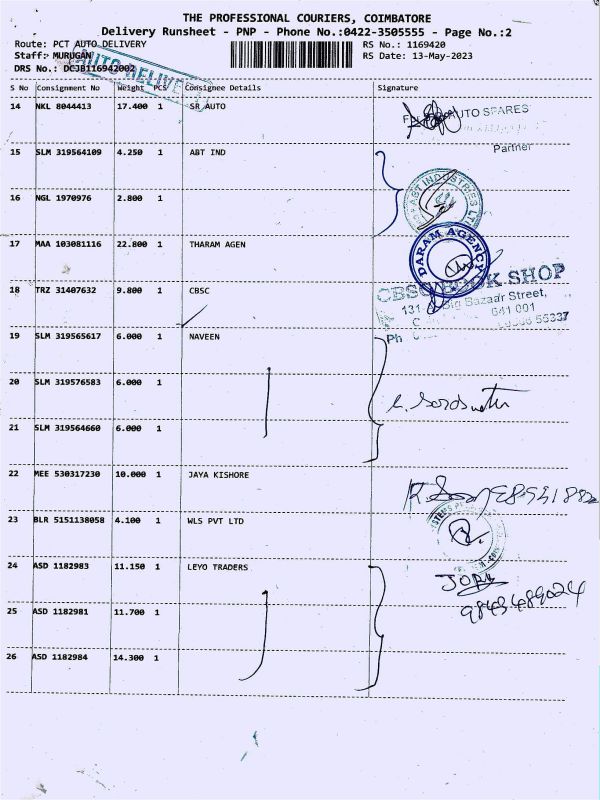 THE PROFESSIONAL COURIERS, COIMBATORE
Delivery Runsheet - PNP - Phone No.:0422-3505555 - Page No.:2
Route: PCT AUTO DELIVERY RS No.: 1169420
Staff: MURUGAN RS Date: 13-May-2023
DRS No.: DCJB116942002
AUTO DELIVERY
S No Consignment No Weight PCS Consignee Details Signature
14 NKL 8044413 17.400 1 SR AUTO
AUTO SPARES
Partner
15 SLM 319564109 4.250 1 ABT IND
16 NGL 1970976 2.800 1
17 MAA 103081116 22.800 1 THARAM AGEN
DARAM AGENCY
18 TRZ 31407632 9.800 1 CBSC
CBSC BOOK SHOP
131 Big Bazaar Street,
641 001
Ph
19 SLM 319565617 6.000 1 NAVEEN
20 SLM 319576583 6.000 1
21 SLM 319564660 6.000 1
22 MEE 530317230 10.000 1 JAYA KISHORE
23 BLR 5151138058 4.100 1 WLS PVT LTD
24 ASD 1182983 11.150 1 LEYO TRADERS
25 ASD 1182981 11.700 1
9843489024
26 ASD 1182984 14.300 1